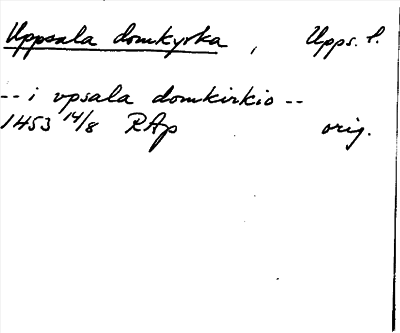 Uppsala domkyrka, Upps. l.
-- i vpsala domkirkio --
1453 14/8 RAp orig.